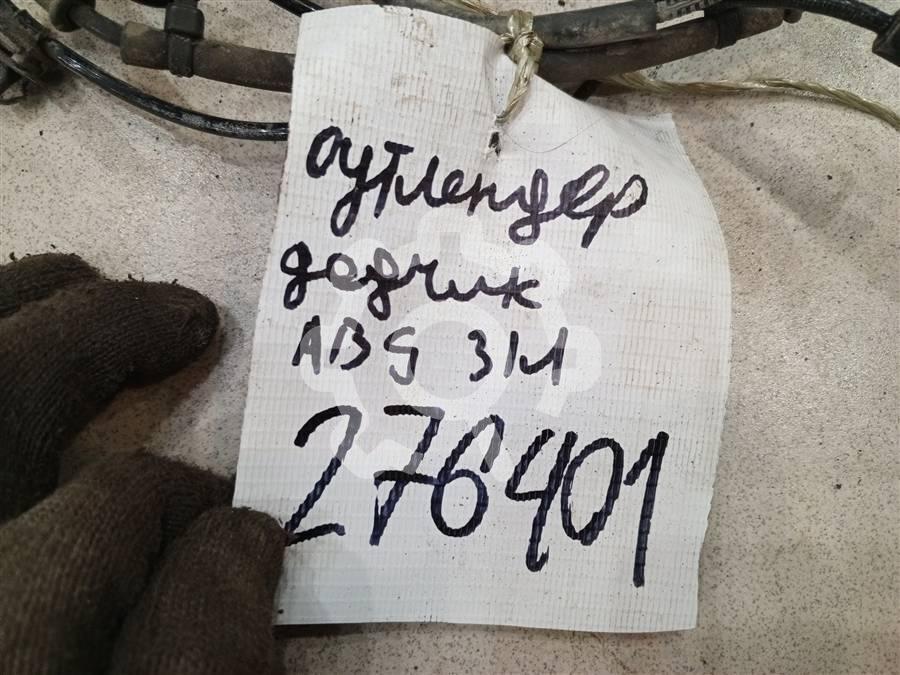 аутлендер
дадчик
ABS ЗЛ
276401